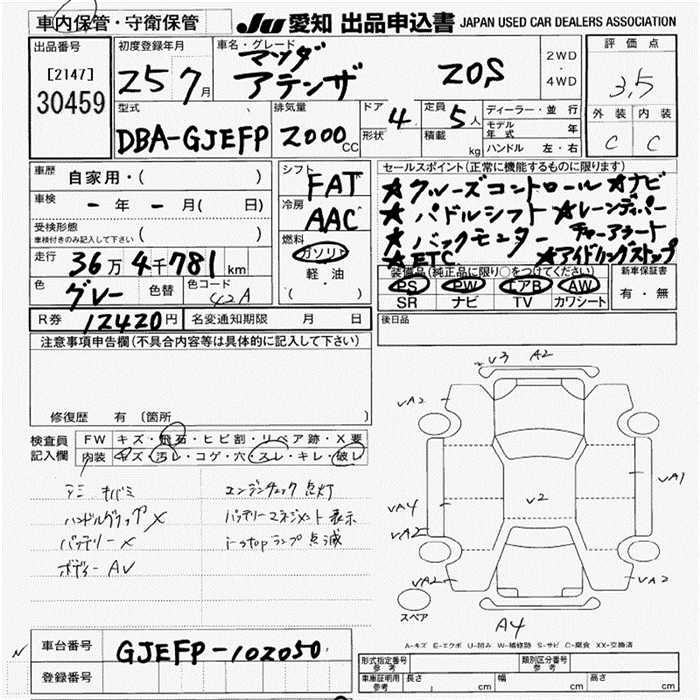 車内保管・守衛保管
JU 愛知 出品申込書 JAPAN USED CAR DEALERS ASSOCIATION
出品番号
[2147]
30459
初度登録年月
25 7月
車名・グレード
マツダ
アテンザ 20S
2WD
・
4WD
評価点
3,5
外装 内装
C C
型式
DBA-GJEFP
排気量
2000 CC
ドア 4
形状
定員 5 人
積載 kg
ディーラー・並行
モデル年式 年
ハンドル 左・右
車歴 自家用・( )
車検 ー 年 ー 月( 日)
受検形態
車検付きのみ記入して下さい ( )
走行 36万4千781 km
色 グレー 色替 色コード 42A
R券 12420円 名変通知期限 月 日
シフト
FAT
冷房
AAC
燃料
ガソリン
軽・油
( )
セールスポイント(正常に機能するものに限ります)
★クルーズコントロール ★ナビ
★パドルシフト ★レーンディパー
★バックモニター チャーアラート
★ETC ★アイドリングストップ
装備品(純正品に限り○をつけてください)
PS PW エアB AW
SR ナビ TV カワシート
新車保証書
有・無
後日品
注意事項申告欄(不具合内容等は具体的に記入して下さい)
修復歴 有 〔箇所 〕
検査員
記入欄
FW キズ・飛石・ヒビ割・リペア跡・X要
内装 キズ・汚レ・コゲ・穴・スレ・キレ・破レ
エンジンチェック 点灯
ハンドルグリップ X バッテリーマネジメント 表示
バッテリー X i-stopランプ 点滅
ボディー AV
V3 A2
VA2
VA1
VA4
V2
VA2
VA2
VA2
A4
スペア
A-キズ E-エクボ U-凹み W-補修跡 S-サビ C-腐食 XX-交換済
車台番号 GJEFP-102050
登録番号
型式指定番号 参考
類別区分番号 参考
車庫証明用 参考 長さ cm 幅 cm 高さ cm
N